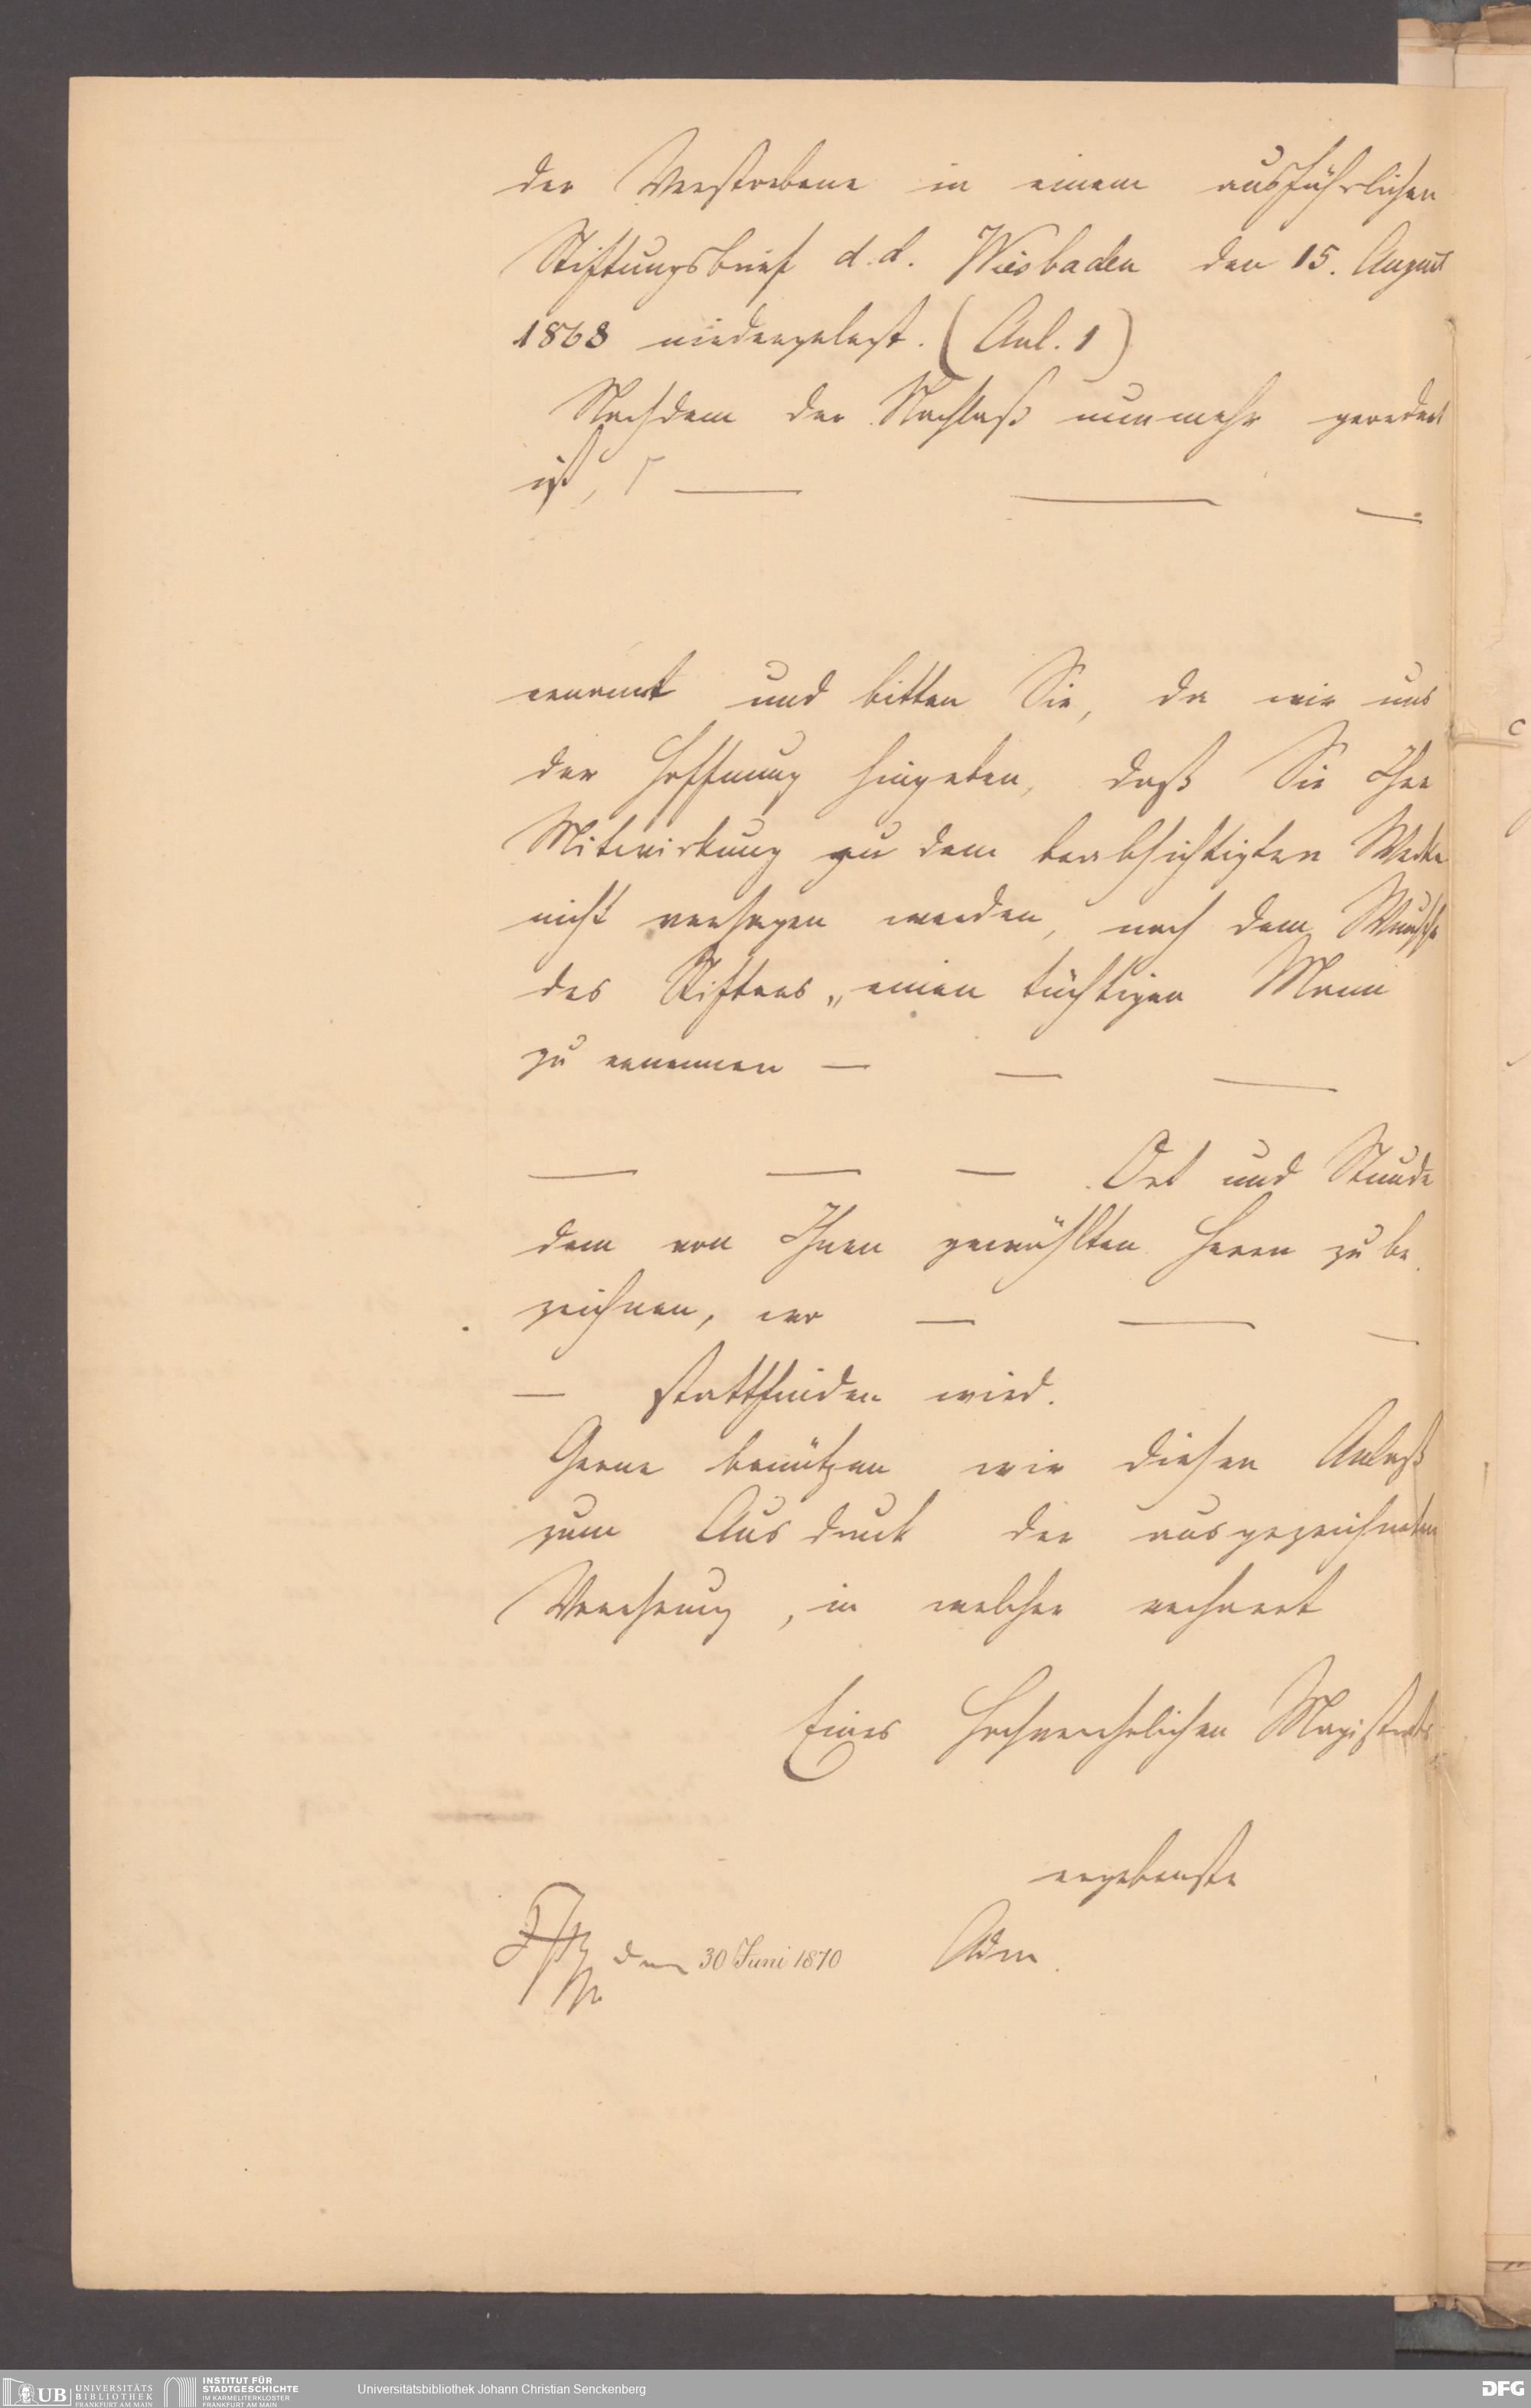 der Verstorbene in einem ausführlichen
Stiftungsbrief d. d. Wiesbaden den 15. August
1868 niedergelegt. (Anl. 1)
Nachdem der Nachlaß nunmehr geordnet
ist, — — —
ernannt und bitten Sie, da wir uns
der Hoffnung hingeben, daß Sie Ihre
Mitwirkung zu dem beabsichtigten Werke
nicht versagen werden, nach dem Wunsche
des Stifters „einen tüchtigen Mann
zu ernennen — — —
— — — Ort und Stunde
dem von Ihnen gewählten Herrn zu be
zeichnen, wo — — —
— stattfinden wird.
Gerne benützen wir diesen Anlaß
zum Ausdruck der ausgezeichneten
Verehrung, in welcher verharrt
Eines Hochverehrlichen Magistrats
ergebenste
den 30 Juni 1870 Adm.
UB UNIVERSITÄTS
BIBLIOTHEK
FRANKFURT AM MAIN
INSTITUT FÜR
STADTGESCHICHTE
IM KARMELITERKLOSTER
FRANKFURT AM MAIN
Universitätsbibliothek Johann Christian Senckenberg
DFG